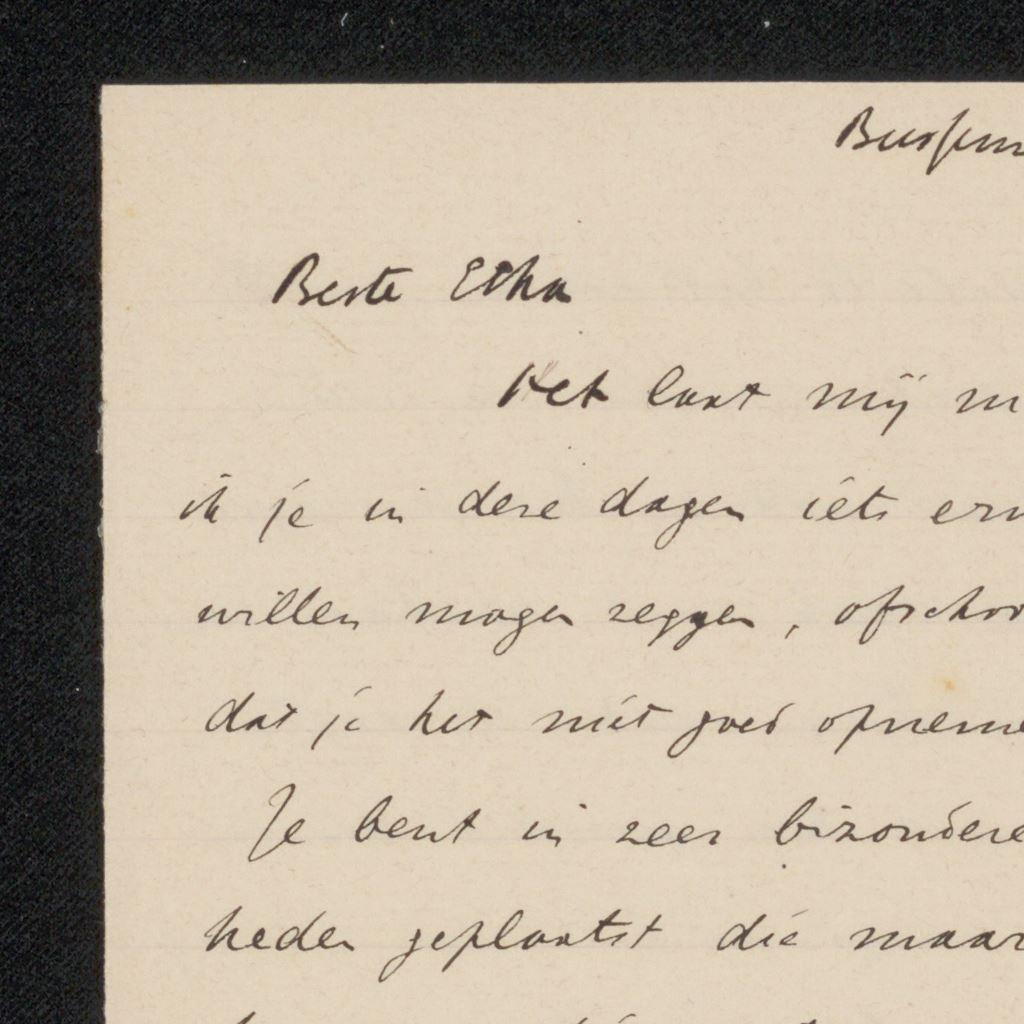 Bussum
Beste Etha
Het laat mij
ik je in deze dagen iets
willen mogen zeggen, ofschoo
dat je het niet goed opneme
Je bent in zeer bizondere
heden geplaatst die maar